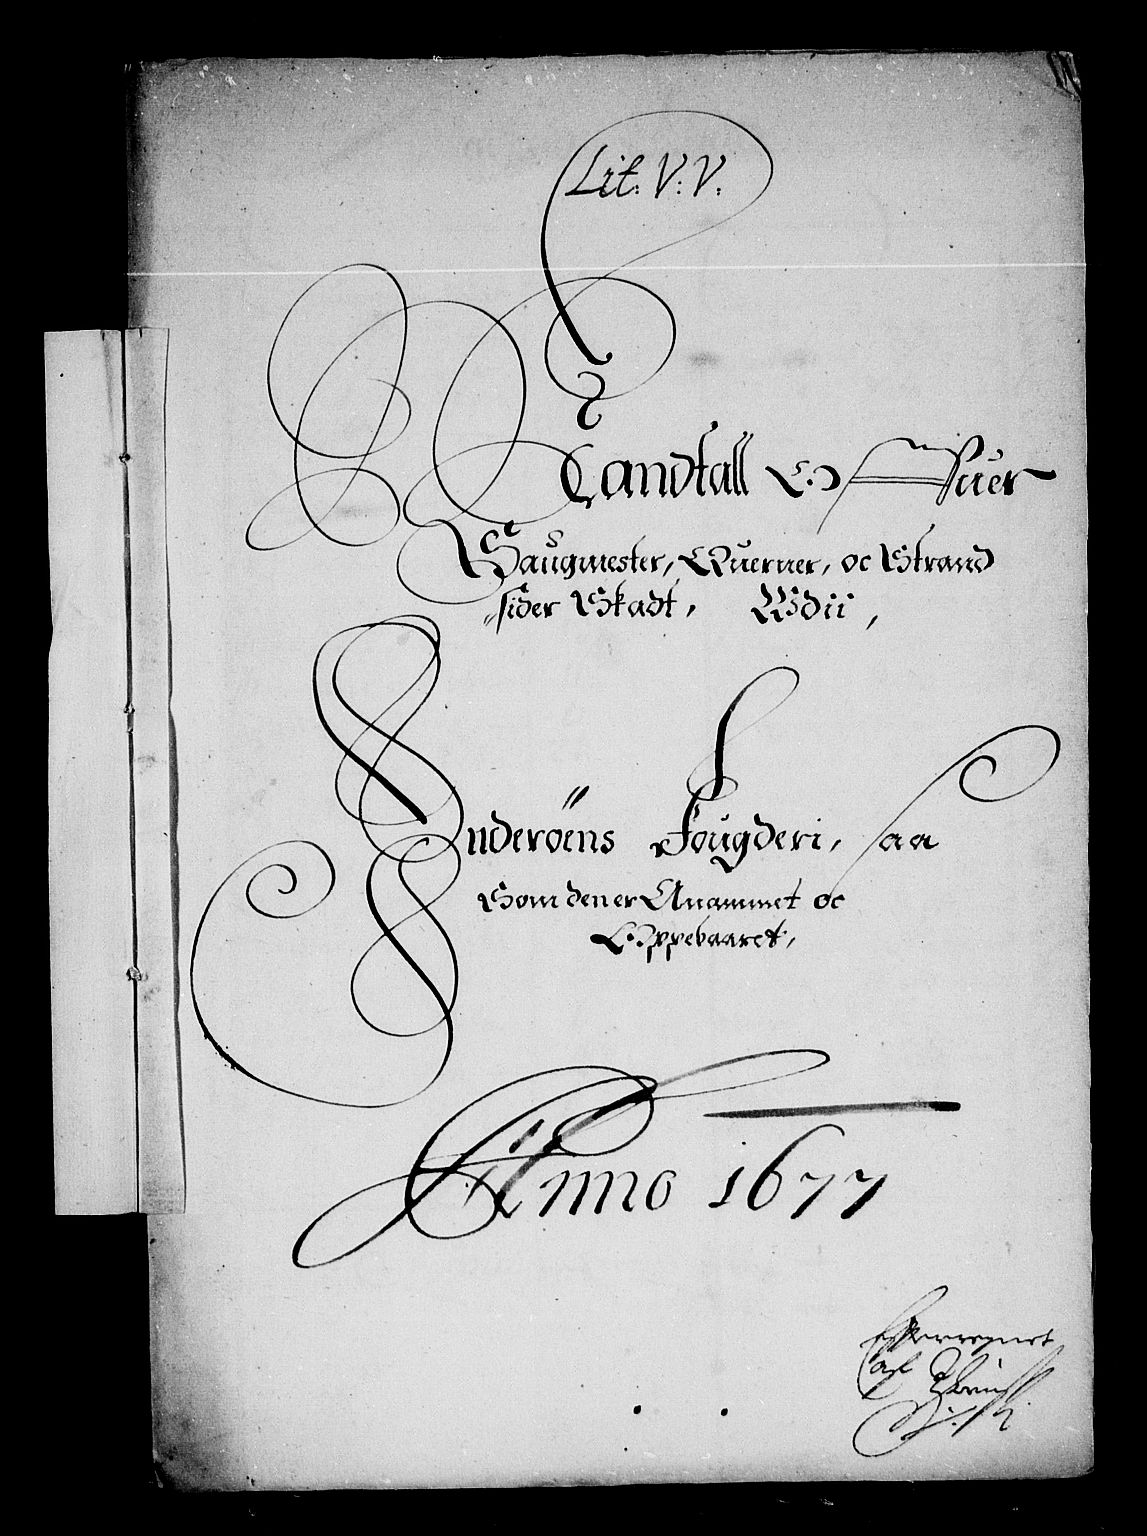 Lit: V: V:
Mandtall Offuer
Saugmester, Querner, oc Strand
sider Skadt, Vdii,
Inderöens Fougderi, saa
Som den er Anammet oc
Oppebaaret,
Anno 1677
Efterregnet
af